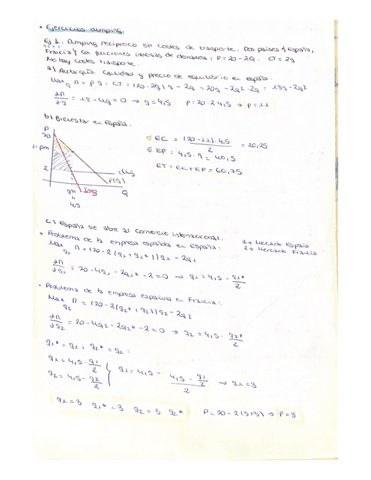 • Ejercicios dumping.
Ej 1. Dumping recíproco sin costes de transporte. Dos países (España,
Francia) con funciones inversas de demanda: P = 20 - 2Q. CT = 2q
No hay costes transporte.
a) Autarquía. Cantidad y precio de equilibrio en España.
Max π = P·q - CT = (20 - 2q)q - 2q = 20q - 2q² - 2q = 18q - 2q²
q
∂π/∂q = 18 - 4q = 0 → q = 4,5 P = 20 - 2·4,5 → P = 11
b) Bienestar en España.
P
20
11 = pm
2
qm
4,5
IMg
P(q)
Q
EC = (20 - 11)·4,5 / 2 = 20,25
EP = 4,5 · 9 = 40,5
ET = EC + EP = 60,75
c) España se abre al comercio internacional.
• Problema de la empresa española en España: 1 → Mercado España
2 → Mercado Francia
Max π = (20 - 2(q1 + q1*))q1 - 2q1
q1
∂π/∂q1 = 20 - 4q1 - 2q1* - 2 = 0 → q1 = 4,5 - q1*/2
• Problema de la empresa española en Francia:
Max π = (20 - 2(q2 + q2*))q2 - 2q2
q2
∂π/∂q2 = 20 - 4q2 - 2q2* - 2 = 0 → q2 = 4,5 - q2*/2
q1* = q1, q2* = q2 :
q1 = 4,5 - q1/2
q2 = 4,5 - q2/2
→ q1 = 3
q1 = 3 q1* = 3 q2 = 3 q2* P = 20 - 2(3+3) → P = 8